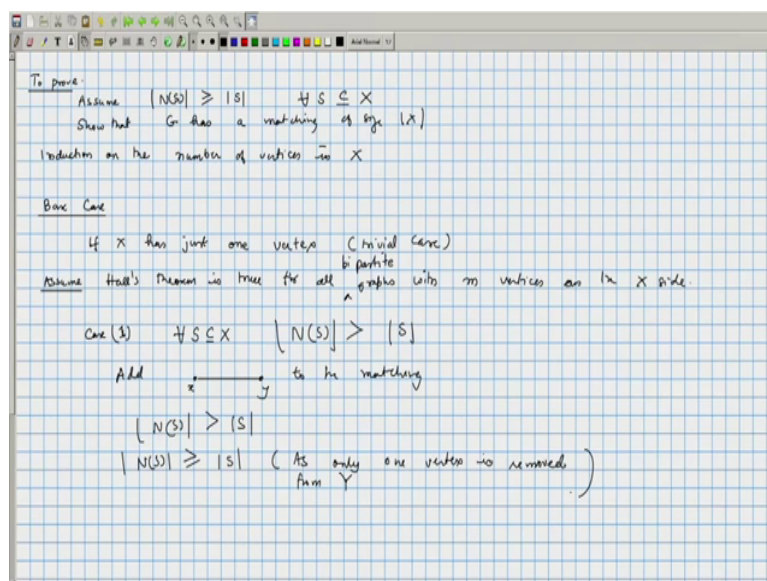 To prove.
Assume |N(S)| ≥ |S| ∀ S ⊆ X
Show that G has a matching of size |X|
Induction on the number of vertices in X
Base Case
If X has just one vertex (trivial case)
bipartite
Assume Hall's theorem is true for all ^ graphs with m vertices on the X side.
Case (1) ∀ S ⊆ X |N(S)| > |S|
Add x y to the matching
|N(S)| > |S|
|N(S)| ≥ |S| (As only one vertex is removed
from Y.)